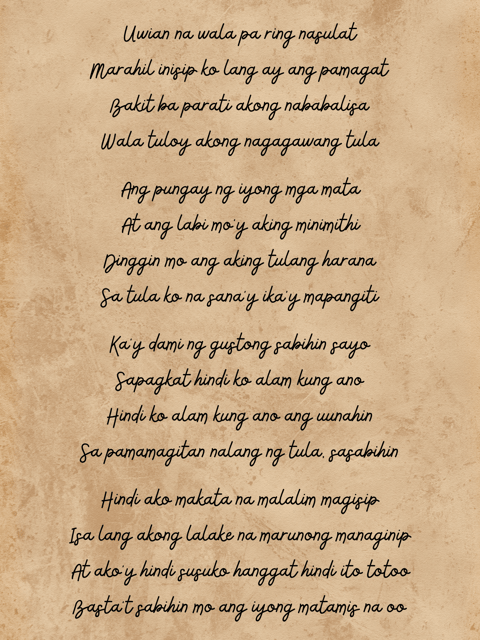 Uwian na wala pa ring nasulat
Marahil inisip ko lang ay ang pamagat
Bakit ba parati akong nababalisa
Wala tuloy akong nagagawang tula
Ang pungay ng iyong mga mata
At ang labi mo'y aking minimithi
Dinggin mo ang aking tulang harana
Sa tula ko na sana'y ika'y mapangiti
Ka'y dami ng gustong sabihin sayo
Sapagkat hindi ko alam kung ano
Hindi ko alam kung ano ang uunahin
Sa pamamagitan nalang ng tula, sasabihin
Hindi ako makata na malalim magisip
Isa lang akong lalake na marunong managinip
At ako'y hindi susuko hanggat hindi ito totoo
Basta't sabihin mo ang iyong matamis na oo